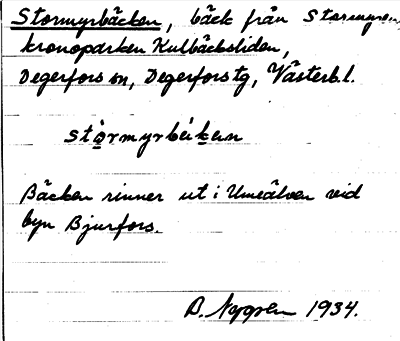 Stormyrbäcken, bäck från Stormyren,
kronoparken Kulbäcksliden,
Degerfors sn, Degerfors tg, Västerb. l.
stòrmyrbéiken
Bäcken rinner ut i Umeälven vid
byn Bjurfors.
B. Nygren 1934.